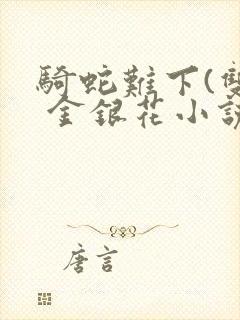 騎蛇難下(雙
金銀花小說
唐言